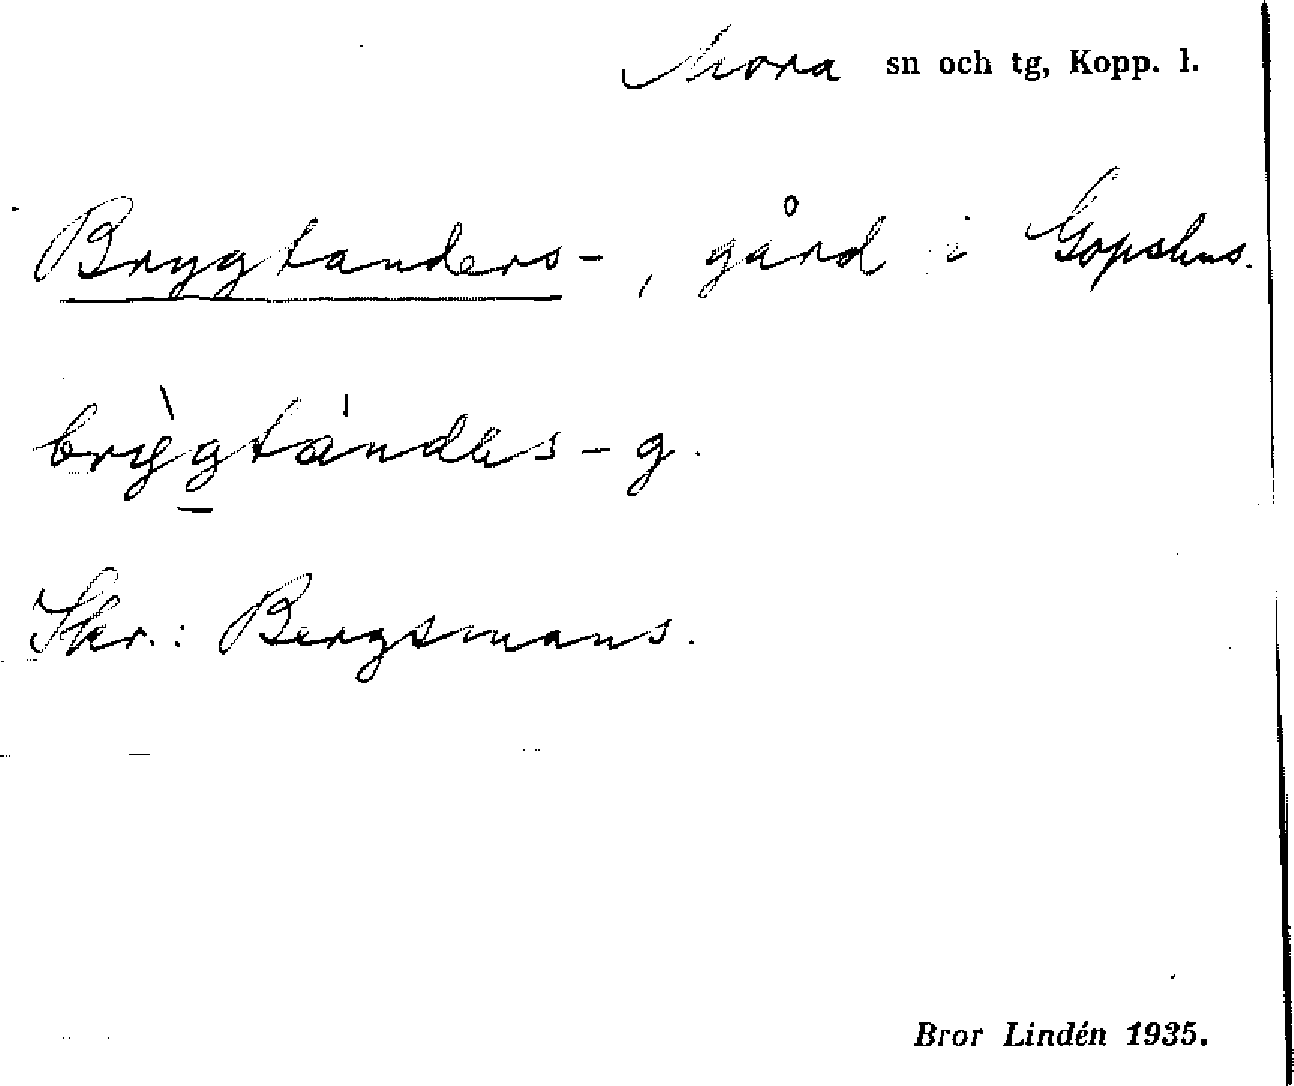 Mora sn och tg, Kopp. l.
Brygtanders-, gård i Gopshus.
brỳgtándas-g.
Skr.: Bergsmans.
Bror Lindén 1935.